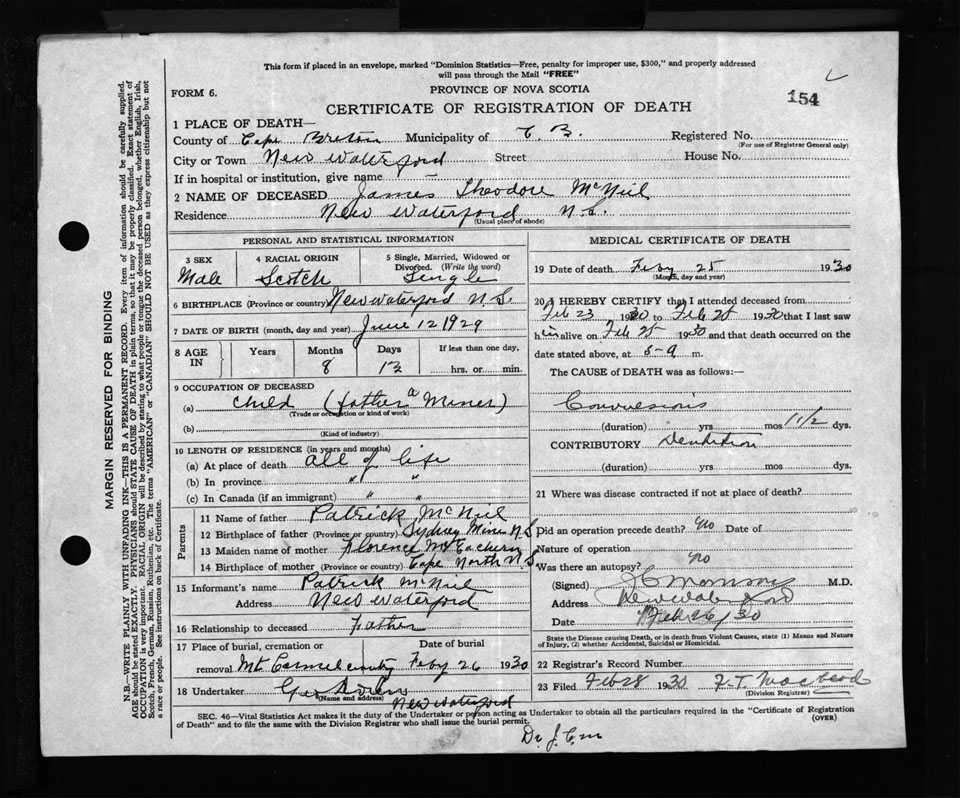 This form if placed in an envelope, marked "Dominion Statistics—Free, penalty for improper use, $300," and properly addressed
will pass through the Mail "FREE"
FORM 6.
PROVINCE OF NOVA SCOTIA
154
CERTIFICATE OF REGISTRATION OF DEATH
1 PLACE OF DEATH—
County of Cape Breton Municipality of C. B. Registered No.
(For use of Registrar General only)
City or Town New Waterford Street House No.
If in hospital or institution, give name
2 NAME OF DECEASED James Theodore McNeil
Residence New Waterford N.S.
(Usual place of abode)
PERSONAL AND STATISTICAL INFORMATION
3 SEX 4 RACIAL ORIGIN 5 Single, Married, Widowed or
Divorced. (Write the word)
Male Scotch Single
6 BIRTHPLACE (Province or country) New Waterford N.S.
7 DATE OF BIRTH (month, day and year) June 12 1929
8 AGE IN Years Months Days If less than one day,
8 13 hrs. or min.
9 OCCUPATION OF DECEASED
(a) Child (father a Miner)
(Trade or occupation or kind of work)
(b)
(Kind of industry)
10 LENGTH OF RESIDENCE (in years and months)
(a) At place of death all of life
(b) In province " "
(c) In Canada (if an immigrant) " "
Parents
11 Name of father Patrick McNeil
12 Birthplace of father (Province or country) Sydney Mines N.S.
13 Maiden name of mother Florence McEachern
14 Birthplace of mother (Province or country) Cape North N.S.
15 Informant's name Patrick McNeil
Address New Waterford
16 Relationship to deceased Father
17 Place of burial, cremation or Date of burial
removal Mt Carmel Feby 26 1930
18 Undertaker
(Name and address)
New Waterford
MEDICAL CERTIFICATE OF DEATH
19 Date of death Feby 25 1930
(Month, day and year)
20 I HEREBY CERTIFY that I attended deceased from
Feb 23 1930 to Feb 25 1930 that I last saw
him alive on Feb 25 1930 and that death occurred on the
date stated above, at 5-9 m.
The CAUSE of DEATH was as follows:—
Convulsions
(duration) yrs mos 1 1/2 dys.
CONTRIBUTORY Dentition
(duration) yrs. mos. dys.
21 Where was disease contracted if not at place of death?
Did an operation precede death? no Date of
Nature of operation
Was there an autopsy? no
(Signed) M.D.
Address New Waterford
Date Feb 26/30
State the Disease causing Death, or in death from Violent Causes, state (1) Means and Nature
of Injury, (2) whether Accidental, Suicidal or Homicidal.
22 Registrar's Record Number
23 Filed Feb 28 1930 F. T. MacLeod
(Division Registrar)
SEC. 46—Vital Statistics Act makes it the duty of the Undertaker or person acting as Undertaker to obtain all the particulars required in the "Certificate of Registration
of Death" and to file the same with the Division Registrar who shall issue the burial permit.
(OVER)
MARGIN RESERVED FOR BINDING
N.B.—WRITE PLAINLY WITH UNFADING INK—THIS IS A PERMANENT RECORD. Every item of information should be carefully supplied.
AGE should be stated EXACTLY. PHYSICIANS should STATE CAUSE OF DEATH in plain terms, so that it may be properly classified. Exact statement of
OCCUPATION is very important. RACIAL ORIGIN will be described by stating to what people or tongue the deceased person belonged, whether English, Irish,
Scotch, French, German, Russian, Ruthenian, etc. The terms "AMERICAN" or "CANADIAN" SHOULD NOT BE USED as they express citizenship but not
a race or people. See instructions on back of Certificate.